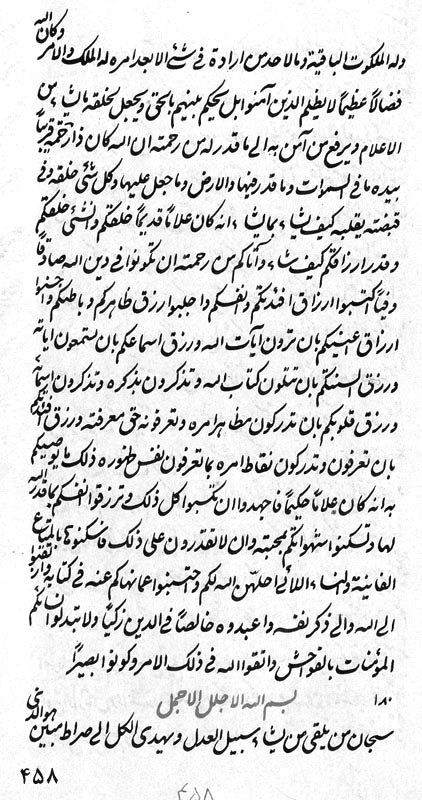 وله الملكوت الباقية وما لاحد من ارادة في شئ الا بعد امره له الملك والامر وكان الله
فضالاً عظيماً لا يظلم الذين آمنوا بل يحكم بينهم بالحق ويجعل لخلقه يشاء من
الاعلام ويرفع من آمن به الى ما قدر له من رحمته ان الله كان ذا رحمة قريباً
بيده ما في السموات وما قدر فيها والارض وما جعل عليها وكل شئ خلقه وفي
قبضته يقلبه كيف يشاء بما يشاء انه كان علاماً قديماً خلقكم ولشئ خلقكم
وقدر ارزاقكم كيف شاء وآتاكم من رحمته ان تكونوا في دين الله صادقاً
وقياً اكتسبوا ارزاق افئدتكم وانفسكم واجلبوا رزق ظاهركم وباطنكم
ارزاق اعينكم بان ترون آيات الله ورزق اسماعكم بان تستمعون اياته
ورزق السنتكم بان تتلون كتاب الله وتذكرون بذكره وتذكرون اسمائه
ورزق قلوبكم بان تدركون مظاهر امره وتعرفونه حق معرفته ورزق افئدتكم
بان تعرفون وتدركون نقاط امره بما تعرفون نفس ظهوره ذلك ما يوصيكم
به انه كان علاماً حكيماً فاجهدوا ان تكسبوا كل ذلك وترزقوا انفسكم بما قدر الله
لها وتسكنوا اشتهوائكم بمحبته وان لا تقدرون على ذلك فاسكنوها بالمتاع
الفانية والنساء اللائي احلهن الله لكم واجتنبوا عما نهاكم عنه في كتابه وارتفعوا
الى الله والى ذكر نفسه واعبدوه خالصاً في الدين زكياً ولا تبدلوا نسائكم
المؤمنات بالفواحش واتقوا الله في ذلك الامر وكونوا بصيراً
١٨٠ بسم الله الاجلل الاجمل
سبحان من يلقي من يشاء سبيل العدل ويهدي الكل الى صراط مبين هو الذي
۴۵۸
۴۵۸